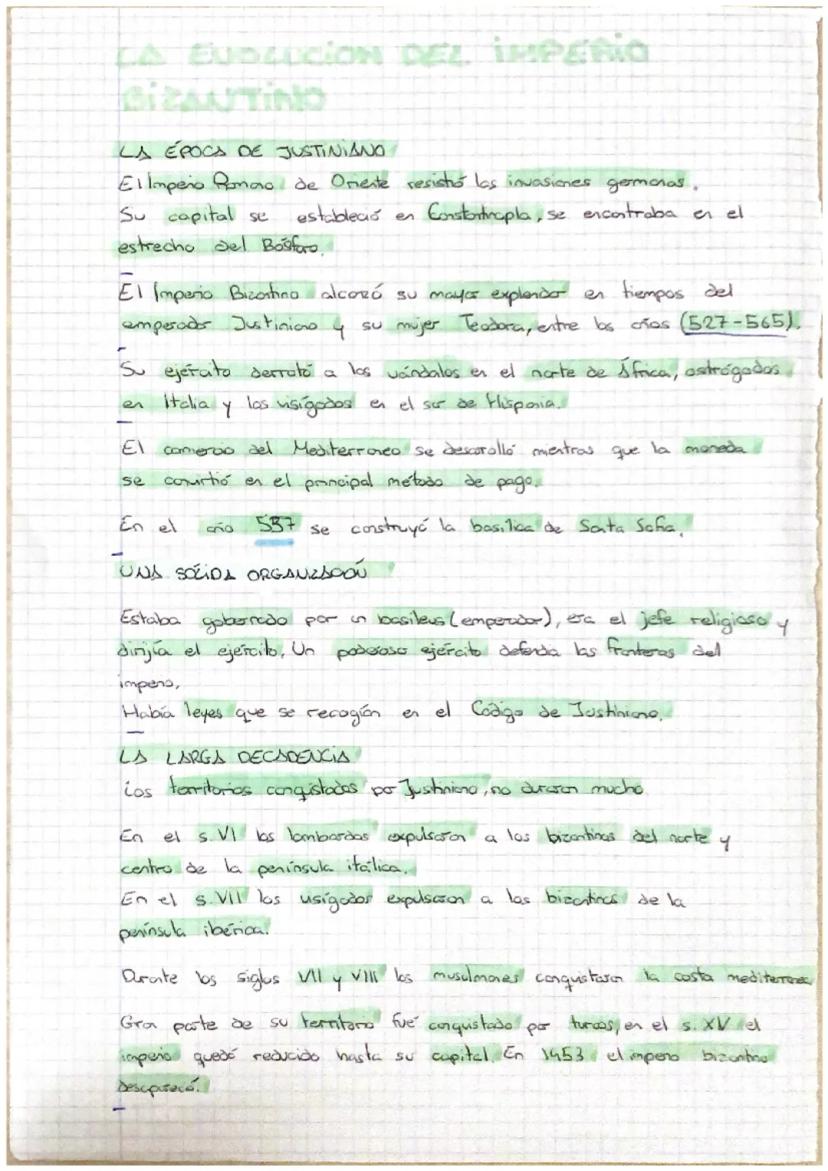 LA EVOLUCIÓN DEL IMPERIO
BIZANTINO
LA ÉPOCA DE JUSTINIANO
El Imperio Romano de Oriente resistió las invasiones germanas.
Su capital se estableció en Constantinopla, se encontraba en el
estrecho del Bósforo.
El Imperio Bizantino alcanzó su mayor explendor en tiempos del
emperador Justiniano y su mujer Teodora, entre los años (527-565).
Su ejército derrotó a los vándalos en el norte de África, ostrógodos
en Italia y los visigodos en el sur de Hispania.
El comercio del Mediterroneo se desarolló mientras que la moneda
se convirtió en el principal método de pago.
En el año 537 se construyó la basílica de Santa Sofía.
UNA SÓLIDA ORGANIZACIÓN
Estaba gobernado por un basileus (emperador), era el jefe religioso y
dirijía el ejército. Un poderoso ejército defendía las fronteras del
imperio.
Había leyes que se recogían en el Código de Justiniano.
LA LARGA DECADENCIA
Los territorios conquistados por Justiniano, no duraron mucho
En el s.VI los lombardos expulsaron a los bizantinos del norte y
centro de la península itálica.
En el s.VII los visigodos expulsaron a los bizantinos de la
península ibérica.
Durante los siglos VII y VIII los musulmanes conquistaron la costa mediterranea
Gran parte de su territorio fué conquistado por turcos, en el s.XV el
imperio quedó reducido hasta su capital. En 1453 el imperio bizantino
desapareció.